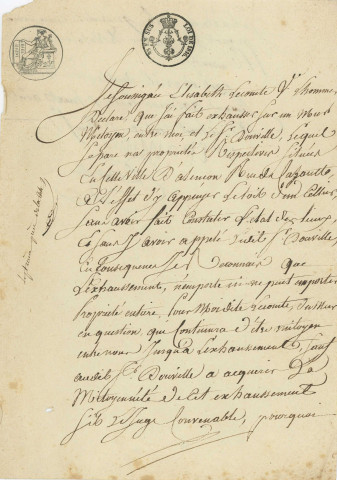 Je soussignée Elisabeth Lecomte Ve Lhomme,
Déclare que j'ai fait exhausser sur un Mur
Mitoyen, entre moi et le Sr Douville, lequel
sépare nos propriétés Respectives situées
en cette ville D'Alencon Rue de
à l'effet d'y appuyer le toit d'un Cellier,
sans avoir fait Constater l'état des lieux
et sans y avoir appelé ledit Sr Douville,
en Conséquence Je reconnais que
l'exhaussement, n'emporte ni ne peut emporter
propriété entière, pour Moi dite Lecomte, du Mur
en question, qui continuera d'être mitoyen
entre nous Jusqu'à l'exhaussement, sauf
audit Sr Douville à acquérir La
Mitoyenneté de cet exhaussement
s'il le Juge Convenable, pourquoi